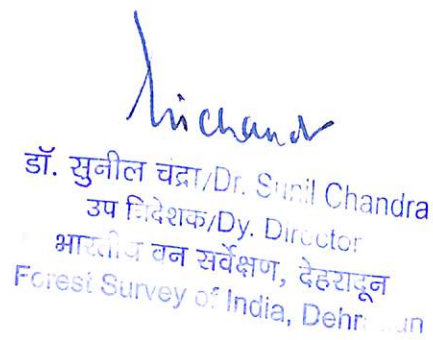 डॉ. सुनील चंद्रा/Dr. Sunil Chandra
उप निदेशक/Dy. Director
भारतीय वन सर्वेक्षण, देहरादून
Forest Survey of India,